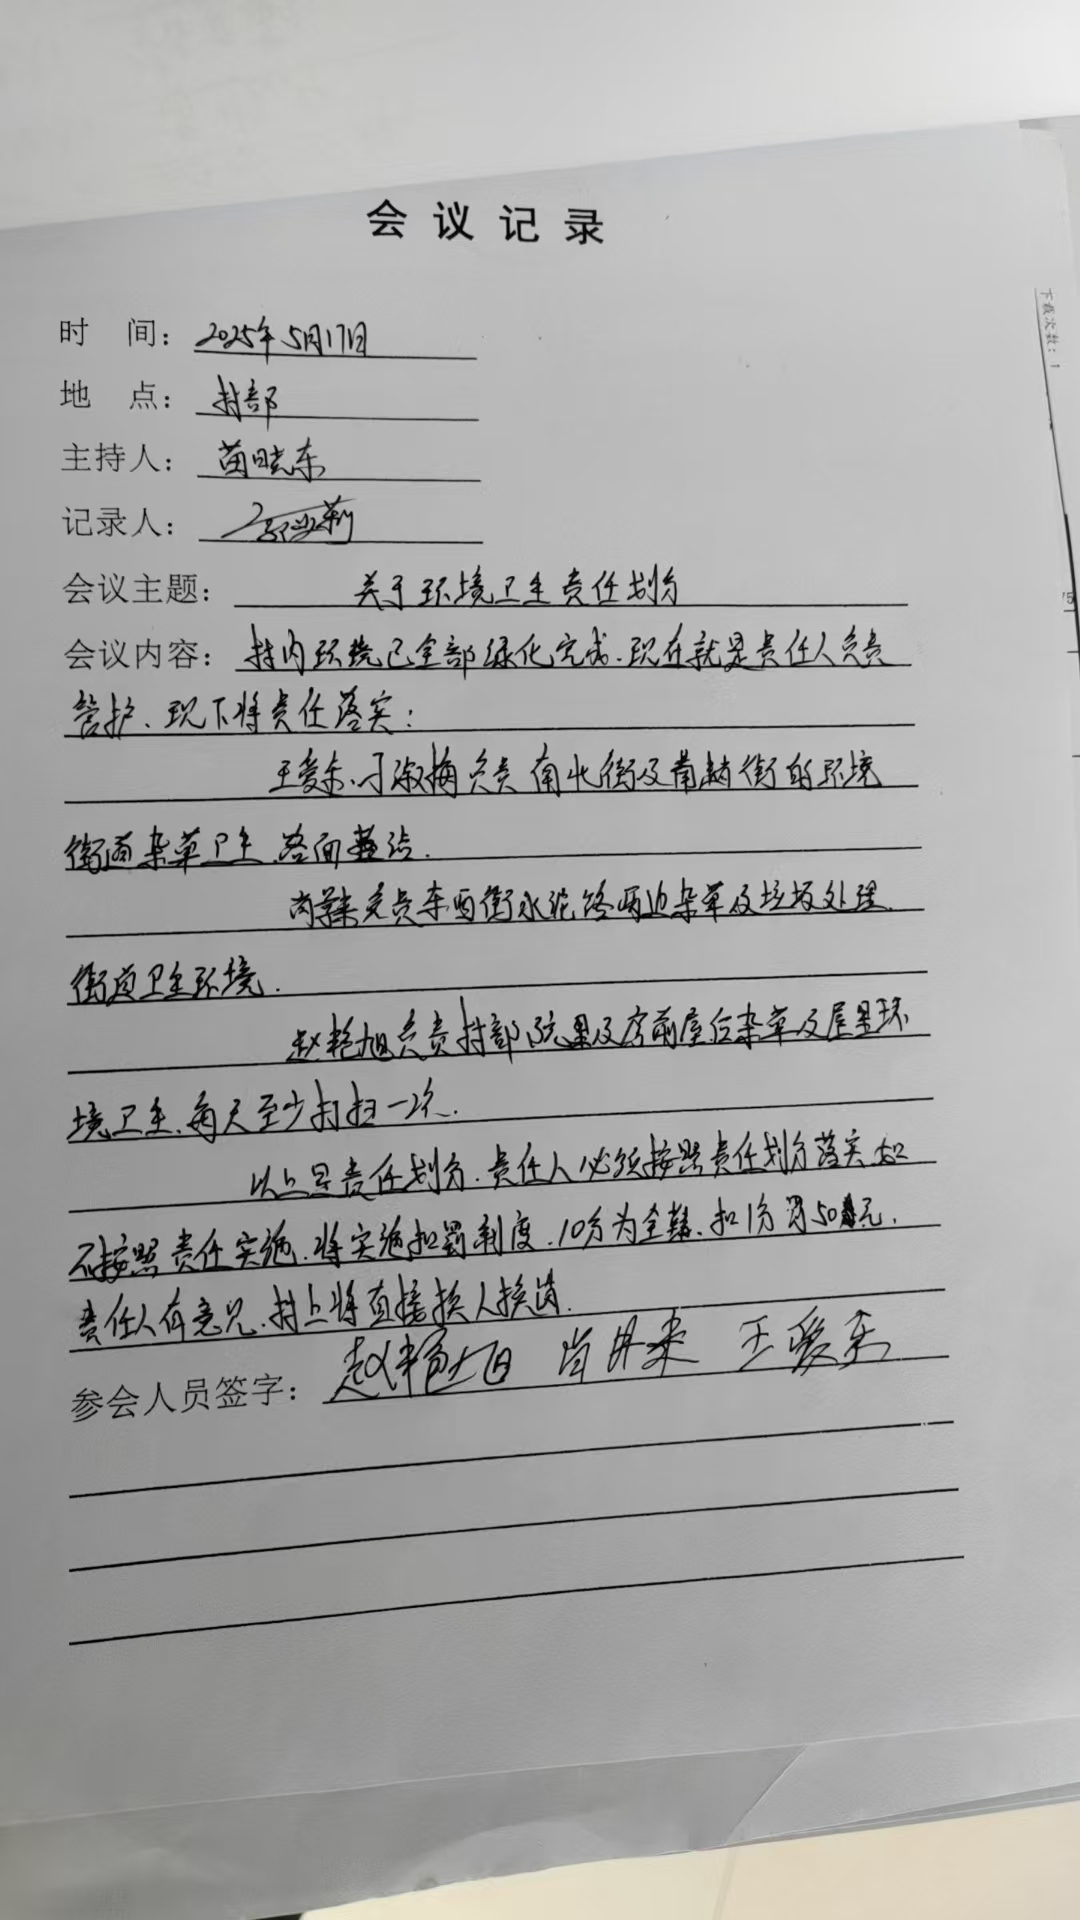 会议记录
时 间：2025年5月17日
地 点：村部
主持人：苗晓东
记录人：
会议主题：关于环境卫生责任划分
会议内容：村内环境已全部绿化完成、现在就是责任人负责
管护、现下将责任落实：
王爱东、于淑梅负责南北街及南 街的环境
街道杂草卫生、路面整洁.
负责东西街水泥路两边杂草及垃圾处理.
街道卫生环境.
赵艳旭负责村部院里及房前屋后杂草及屋里环
境卫生、每天至少打扫一次.
以上是责任划分.责任人必须按照责任划分落实如
不按照责任实施、将实施扣罚制度.10分为全 、扣1分 50元.
责任人有意见、村上将直接换人换岗.
参会人员签字：赵艳旭 肖 来 王爱东
下载次数：1